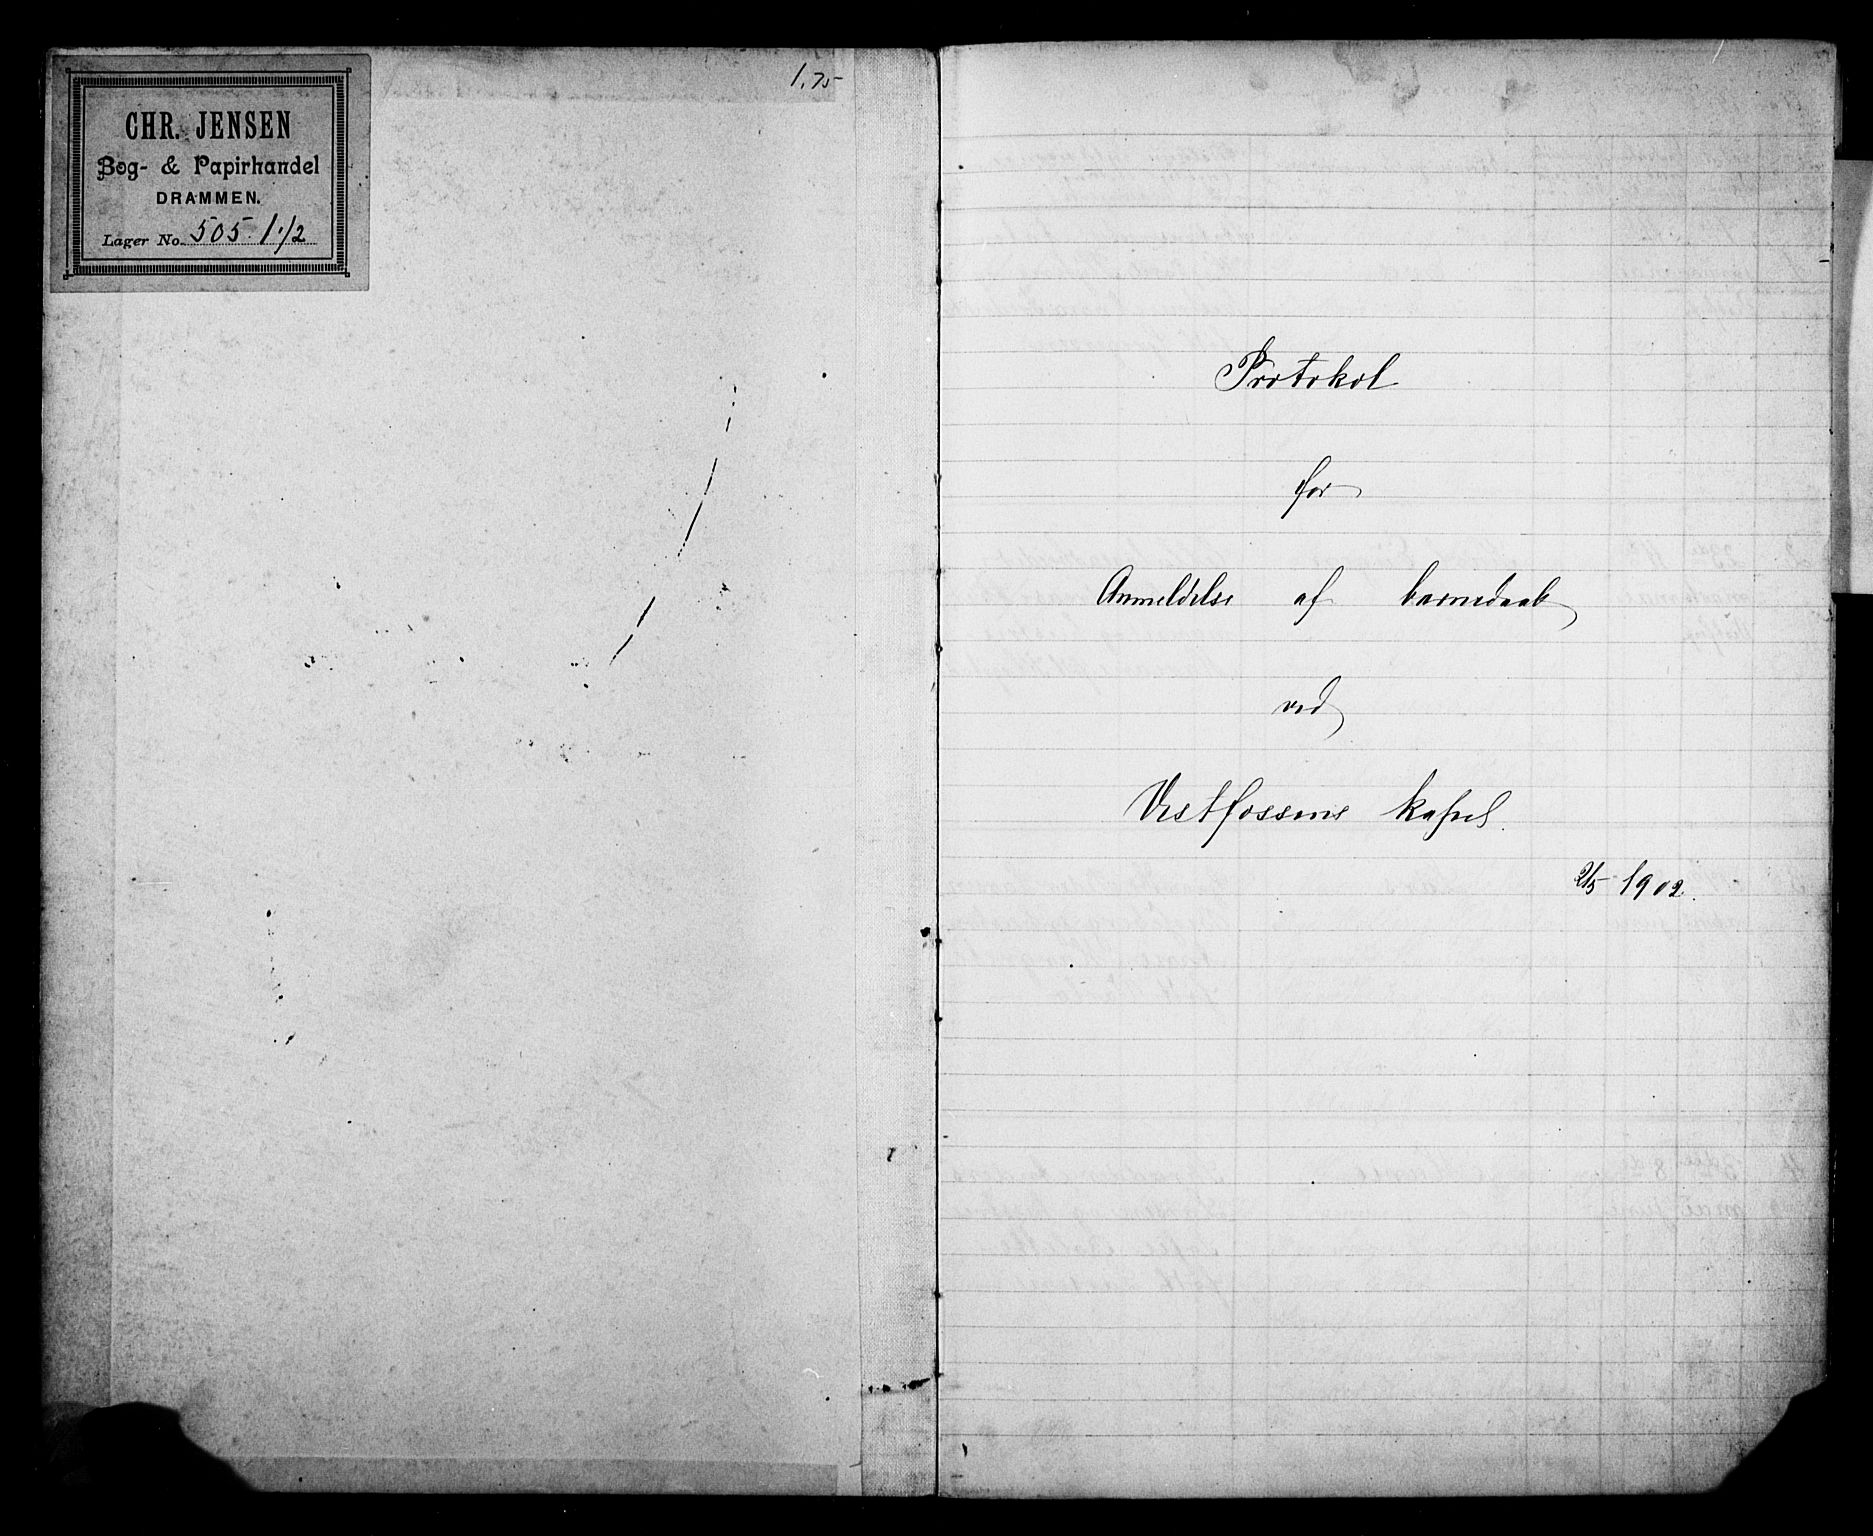 CHR. JENSEN
Bog- & Papirhandel
DRAMMEN.
Lager No. 505 1./2
1.75
Protokol
for
Anmeldelse af barnedaab
ved
Vestfossens kapel.
2/5 1902.